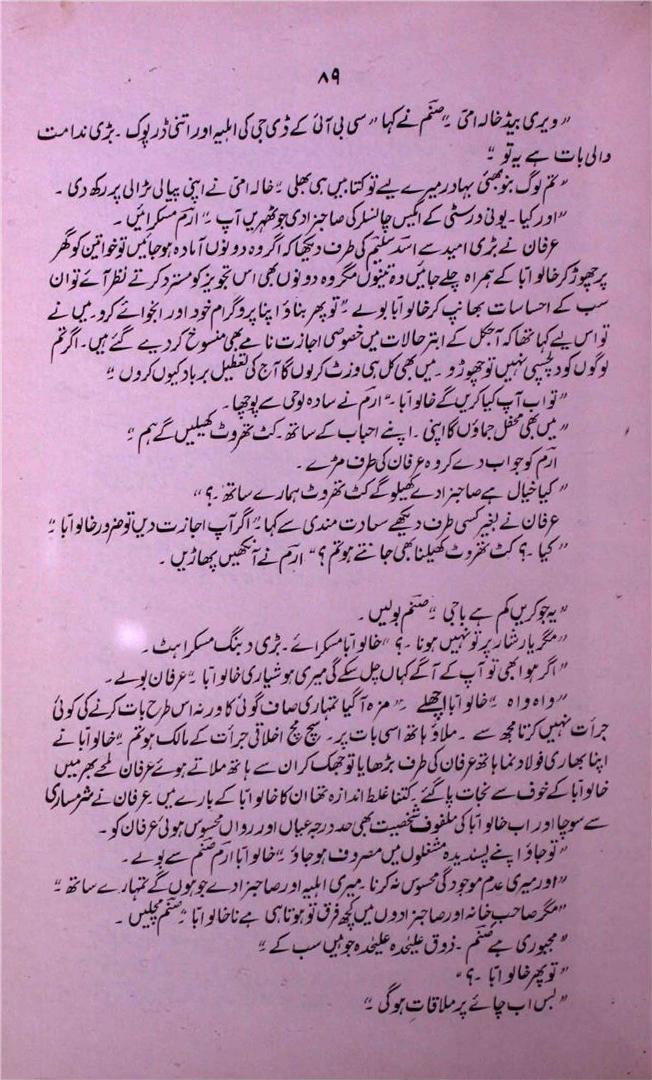 ۸۹
" ویری بیڈ خالہ امی ۔" صنم نے کہا " سی بی آئی کے ڈی جی کی اہلیہ اور اتنی ڈرپوک ۔ بڑی ندامت
والی بات ہے یہ تو ۔"
" تم لوگ بنو بھئی بہادر میرے لیے تو کتابیں ہی بھلی ۔" خالہ امی نے اپنی پیالی ٹرالی پر رکھ دی ۔
" اور کیا ۔ یونی ورسٹی کے ایکس چانسلر کی صاحبزادی جو ٹھہریں آپ ۔" ارم مسکرائیں ۔
عرفان نے بڑی امید سے اسد سلیم کی طرف دیکھا کہ اگر وہ دونوں آمادہ ہو جائیں تو خواتین کو گھر
پر چھوڑ کر خالو ابا کے ہمراہ چلے جائیں وہ تینوں مگر وہ دونوں بھی اس تجویز کو مسترد کرتے نظر آئے تو ان
سب کے احساسات بھانپ کر خالو ابا بولے ۔" تو پھر بناؤ اپنا پروگرام خود اور انجوائے کرو ۔ میں نے
تو اس لیے کہا تھا کہ آجکل کے ابتر حالات میں خصوصی اجازت نامے بھی منسوخ کر دیے گئے ہیں ۔ اگر تم
لوگوں کو دلچسپی نہیں تو چھوڑو ۔ میں بھی کل ہی وزٹ کر لوں گا آج کی تعطیل برباد کیوں کروں ۔"
" تو اب آپ کیا کریں گے خالو ابا ۔" ارم نے سادہ لوحی سے پوچھا ۔
" میں بھی محفل جماؤں گا اپنی ۔ اپنے احباب کے ساتھ ۔ کٹ تھروٹ کھیلیں گے ہم ۔"
ارم کو جواب دے کر وہ عرفان کی طرف مڑے ۔
" کیا خیال ہے صاحبزادے کھیلو گے کٹ تھروٹ ہمارے ساتھ ۔؟"
عرفان نے بغیر کسی طرف دیکھے سعادت مندی سے کہا ۔" اگر آپ اجازت دیں تو ضرور خالو ابا ۔"
" کیا ۔؟ کٹ تھروٹ کھیلنا بھی جانتے ہو تم ؟" ارم نے آنکھیں پھاڑیں ۔
" یہ جو کریں کم ہے باجی ۔" صنم بولیں ۔
" مگر یار شار پر تو نہیں ہونا ۔؟" خالو ابا مسکرائے ۔ بڑی دبنگ مسکراہٹ ۔
" اگر ہوا بھی تو آپ کے آگے کہاں چل سکے گی میری ہوشیاری خالو ابا ۔" عرفان بولے ۔
" واہ واہ ۔" خالو ابا اچھلے ۔" مزہ آ گیا تمہاری صاف گوئی کا ورنہ اس طرح بات کرنے کی کوئی
جرأت نہیں کرتا مجھ سے ۔ ملاؤ ہاتھ اسی بات پر ۔ سچ مچ اخلاقی جرأت کے مالک ہو تم ۔" خالو ابا نے
اپنا بھاری فولاد نما ہاتھ عرفان کی طرف بڑھایا تو جھک کر ان سے ہاتھ ملاتے ہوئے عرفان لمحے بھر میں
خالو ابا کے خوف سے نجات پا گئے ۔ کتنا غلط اندازہ تھا ان کا خالو ابا کے بارے میں ۔ عرفان نے شرمساری
سے سوچا اور اب خالو ابا کی ملفوف شخصیت بھی حد درجہ عیاں اور رواں محسوس ہوئی عرفان کو ۔
" تو جاؤ اپنے پسندیدہ مشغلوں میں مصروف ہو جاؤ ۔" خالو ابا ارم صنم سے بولے ۔
" اور میری عدم موجودگی محسوس نہ کرنا ۔ میری اہلیہ اور صاحبزادے جو ہوں گے تمہارے ساتھ ۔"
" مگر صاحب خانہ اور صاحبزادوں میں کچھ فرق تو ہوتا ہی ہے نا خالو ابا ۔" صنم مچلیں ۔
" مجبوری ہے صنم ۔ ذوق علیٰحدہ علیٰحدہ جو ہیں سب کے ۔"
" تو پھر خالو ابا ۔؟"
" بس اب چائے پر ملاقات ہوگی ۔"